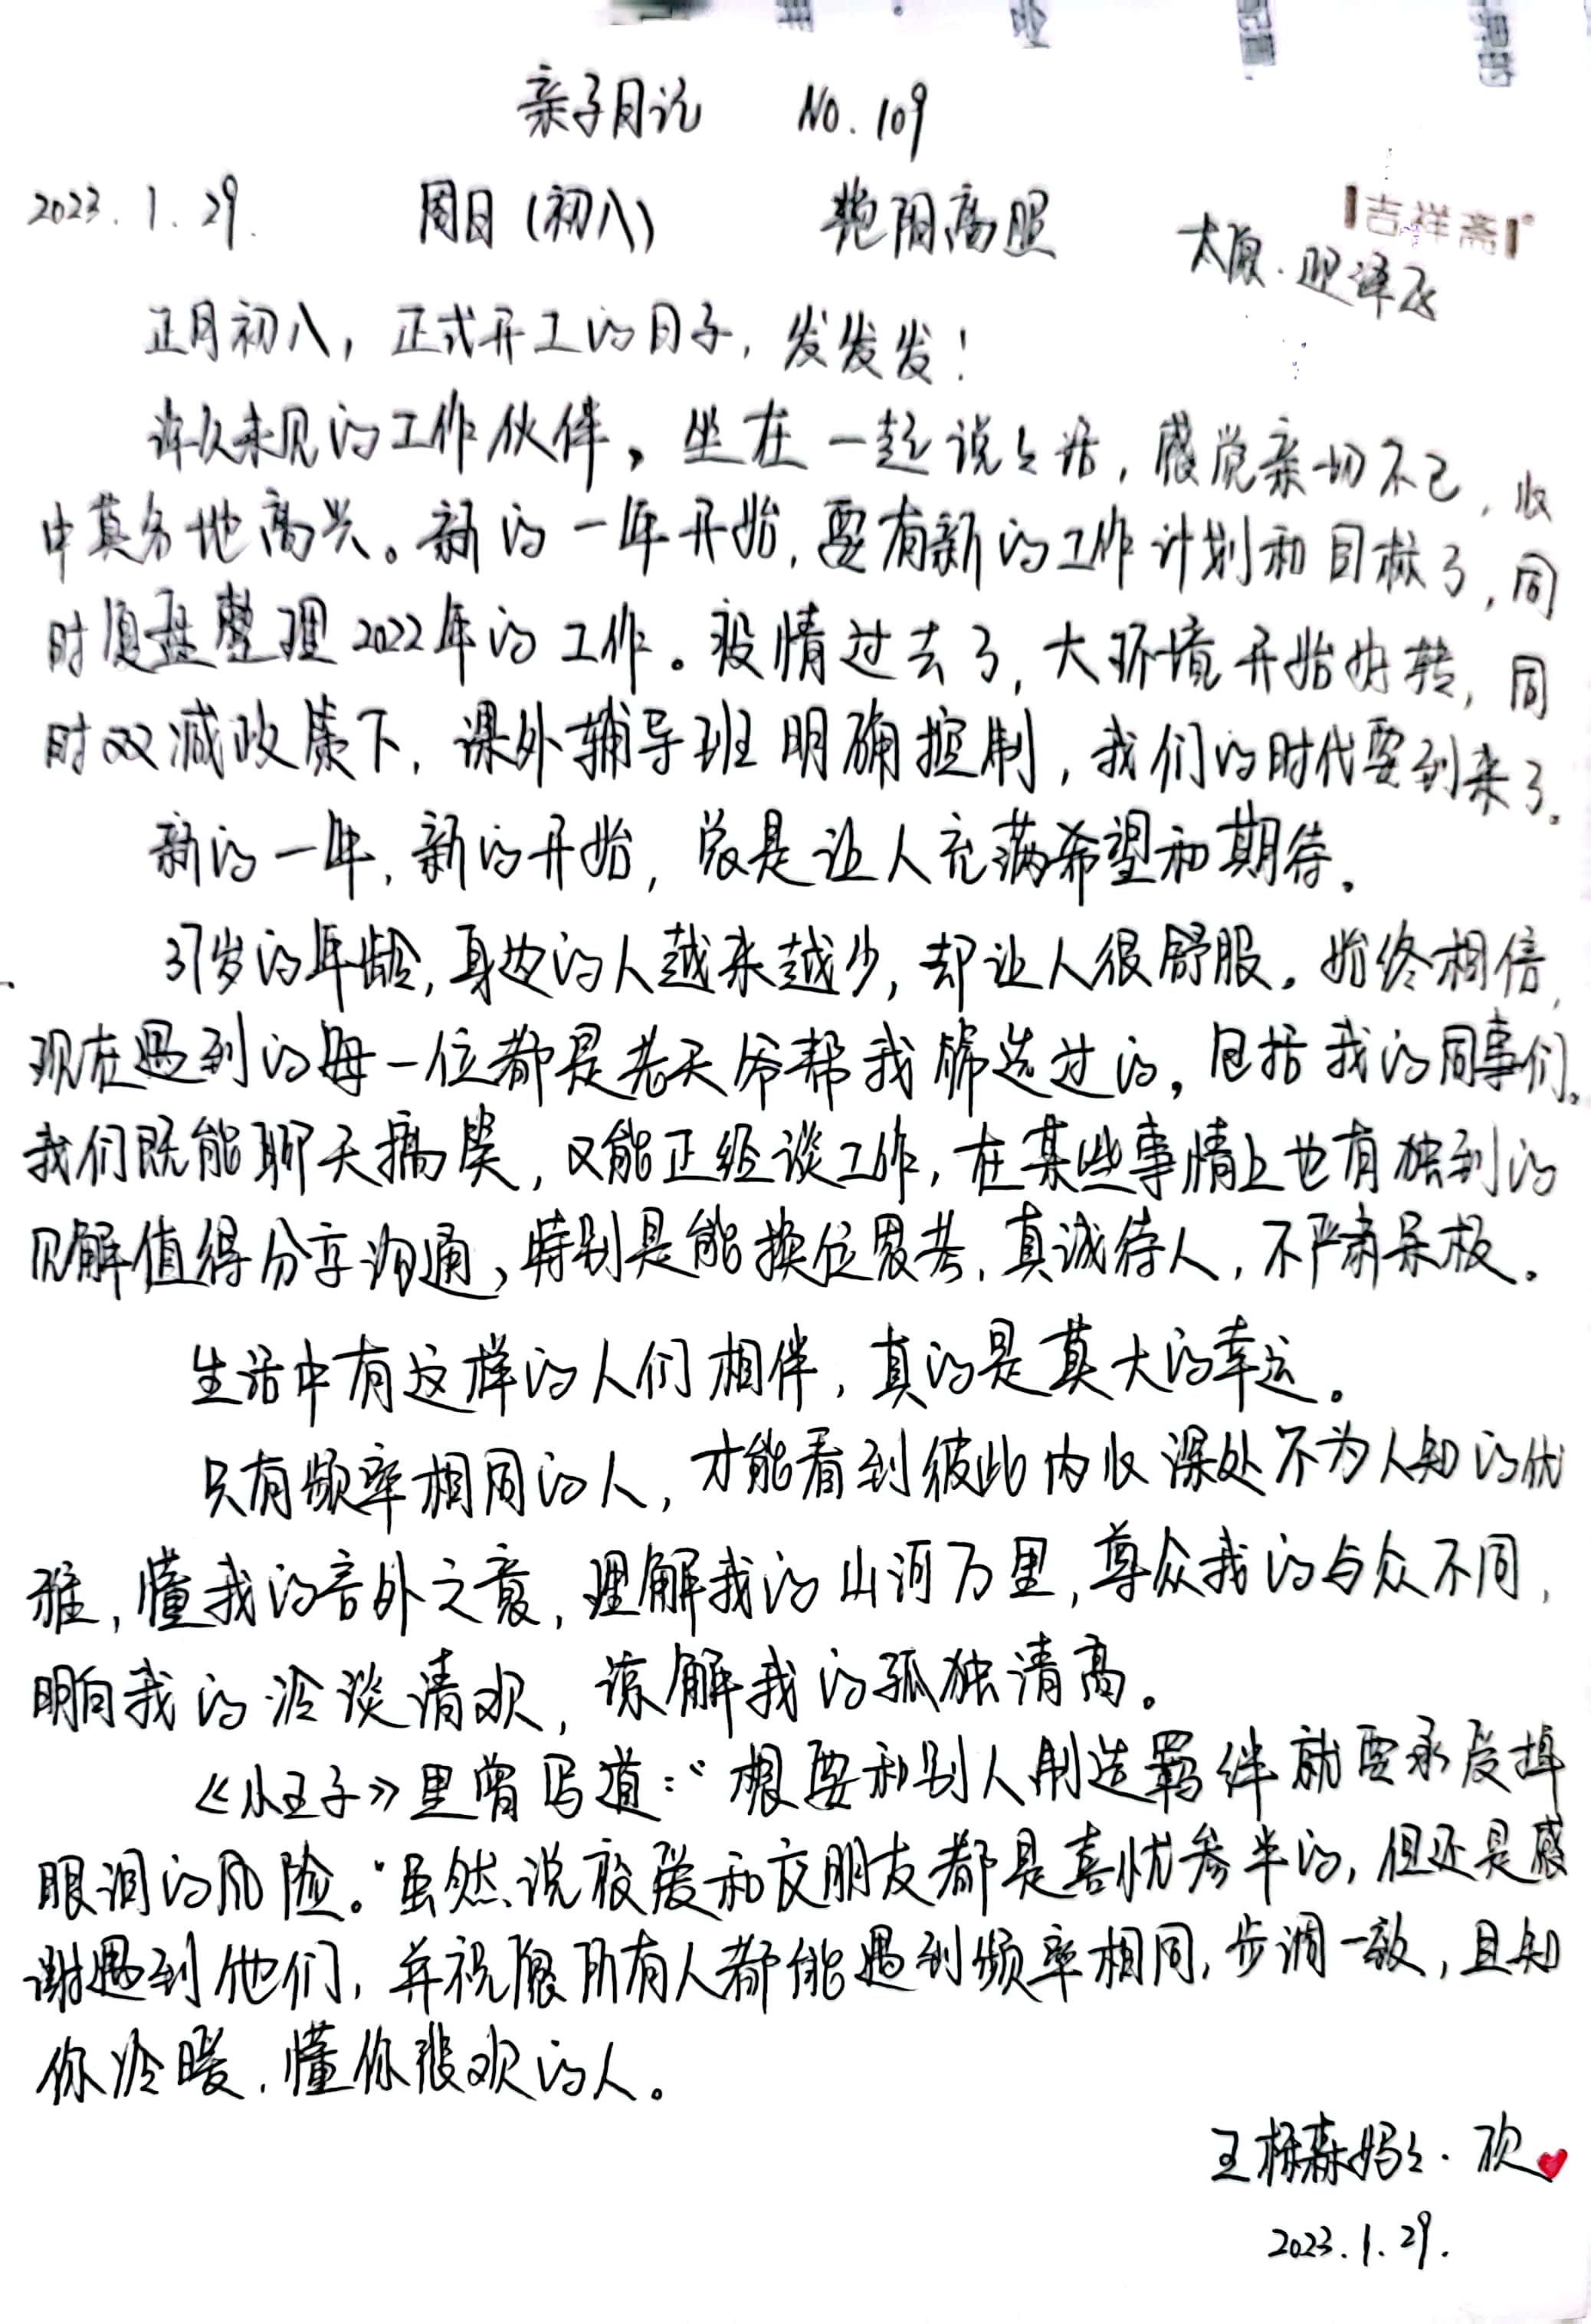 亲子日记 NO.109
2023.1.29. 周日(初八) 艳阳高照 太原·迎泽区
吉祥斋
正月初八，正式开工的日子，发发发！
许久未见的工作伙伴，坐在一起说说话，感觉亲切不已，心
中莫名地高兴。新的一年开始，要有新的工作计划和目标了，同
时复盘整理2022年的工作。疫情过去了，大环境开始好转，同
时双减政策下，课外辅导班明确控制，我们的时代要到来了。
新的一年，新的开始，总是让人充满希望和期待。
37岁的年龄，身边的人越来越少，却让人很舒服。始终相信，
现在遇到的每一位都是老天爷帮我筛选过的，包括我的同事们。
我们既能聊天搞笑，又能正经谈工作，在某些事情上也有独到的
见解值得分享沟通，特别是能换位思考，真诚待人，不严肃呆板。
生活中有这样的人们相伴，真的是莫大的幸运。
只有频率相同的人，才能看到彼此内心深处不为人知的优
雅，懂我的言外之意，理解我的山河万里，尊众我的与众不同，
明白我的冷淡清欢，谅解我的孤独清高。
《小王子》里曾写道：“想要和别人制造羁绊就要承受掉
眼泪的风险。”虽然说被爱和交朋友都是喜忧参半的，但还是感
谢遇到他们，并祝愿所有人都能遇到频率相同，步调一致，且知
你冷暖，懂你悲欢的人。
王栎森妈妈·欣
2023.1.29.